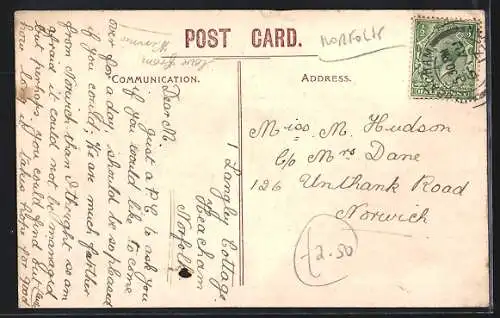 POST CARD.
NORFOLK
COMMUNICATION.
ADDRESS.
1 Langley Cottage
Heacham
Norfolk
Dear M.
Just a P.C. to ask you
if you would like to come
over for a day, should be so pleased
if you could; We are much farther
from Norwich than I thought so am
afraid it could not be managed
but perhaps you could find out
how long it takes Hope for good
love from
Miss. M. Hudson
C/o Mrs Dane
126 Unthank Road
Norwich
2.50